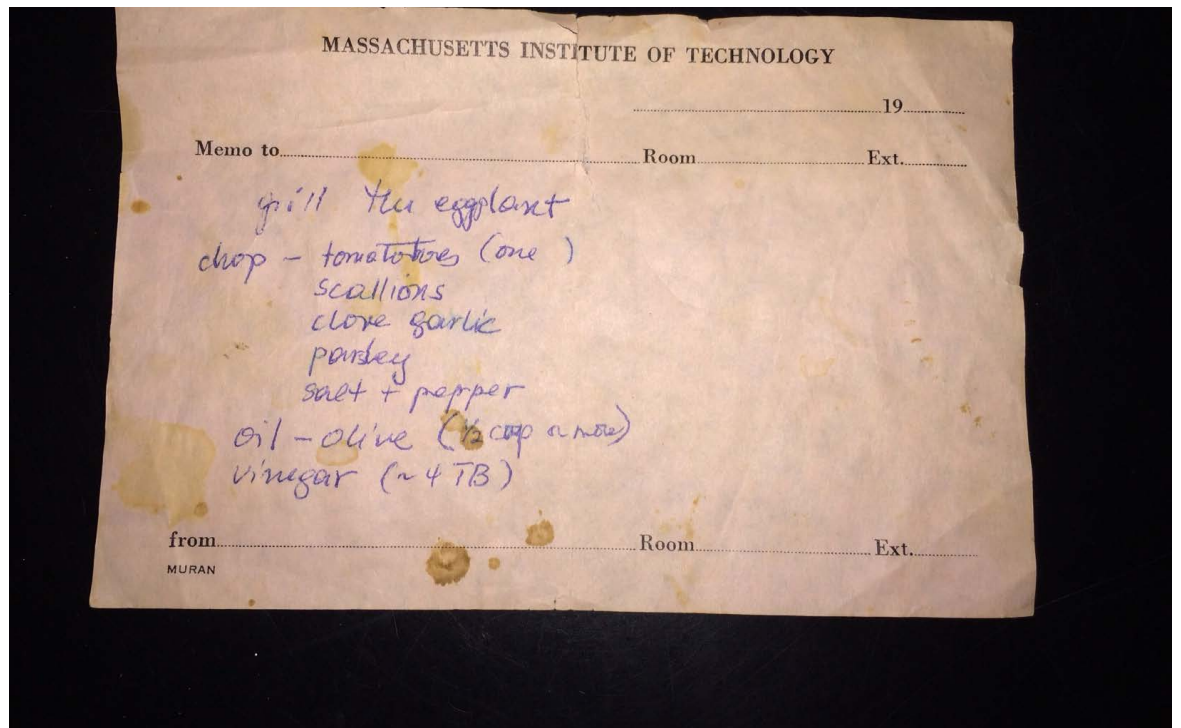 MASSACHUSETTS INSTITUTE OF TECHNOLOGY
19
Memo to Room Ext.
grill the eggplant
chop – tomatotoes (one )
scallions
clove garlic
parsley
salt + pepper
oil – olive (1/2 cup or more)
vinegar (~ 4 TB)
from Room Ext.
MURAN